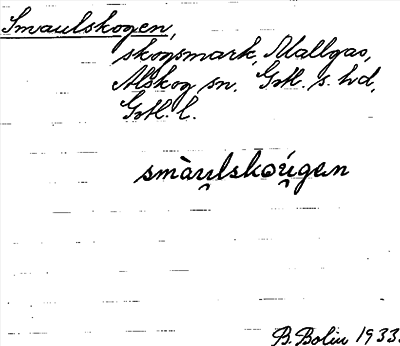 Smaulskogen,
skogsmark, Mallgas,
Alskog sn. Gtl. s. hd,
Gtl. l.
smàu̯lskoúgen
B. Bolin 1933.